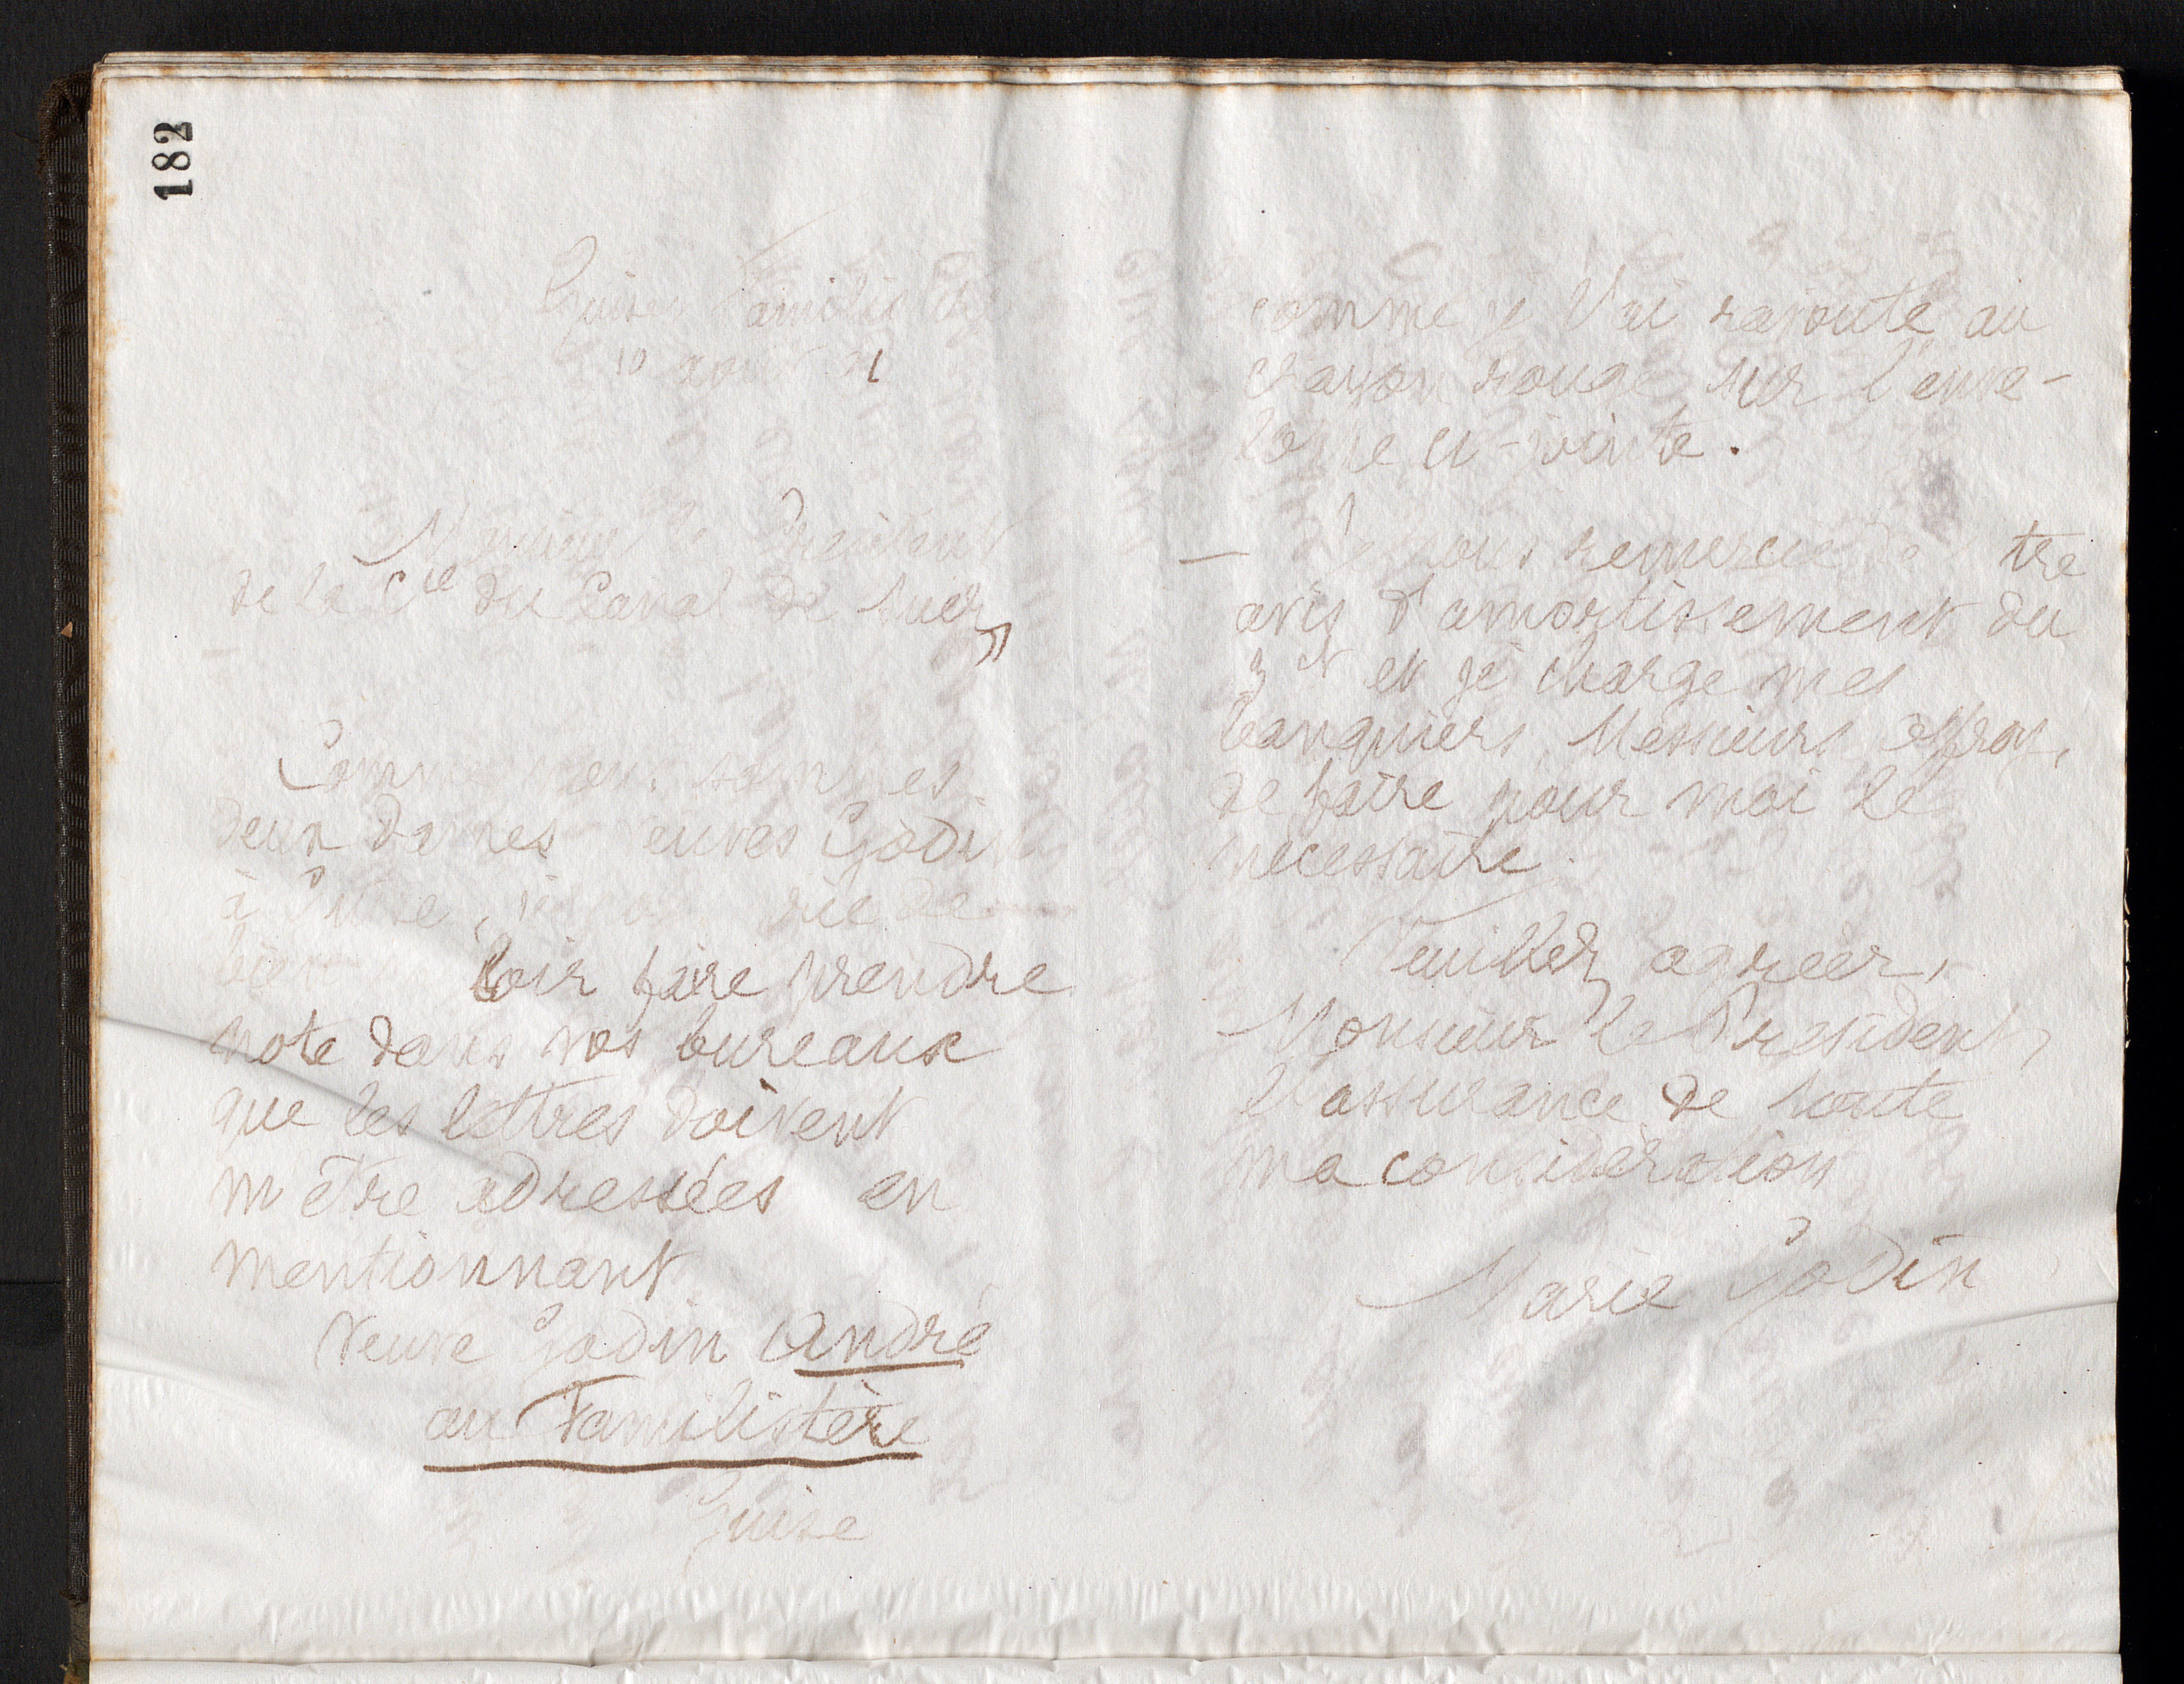 182
Guise Familistère
10 août 91
Monsieur le Président
de la Cie du Canal de Suez
Comme nous sommes
deux dames veuves Godin
à Guise, je vous prie de
bien vouloir faire prendre
note dans vos bureaux
que les lettres doivent
m'être adressées en
mentionnant
Veuve Godin André
au Familistère
Guise
comme je l'ai rajouté au
crayon rouge sur l'enve-
loppe ci-jointe.
— Je vous remercie de
avis d'amortissement du
3 ct et je charge mes
banquiers, Messieurs
de faire pour moi le
nécessaire.
Veuillez agréer,
Monsieur le Président,
l'assurance de toute
ma considération
Marie Godin